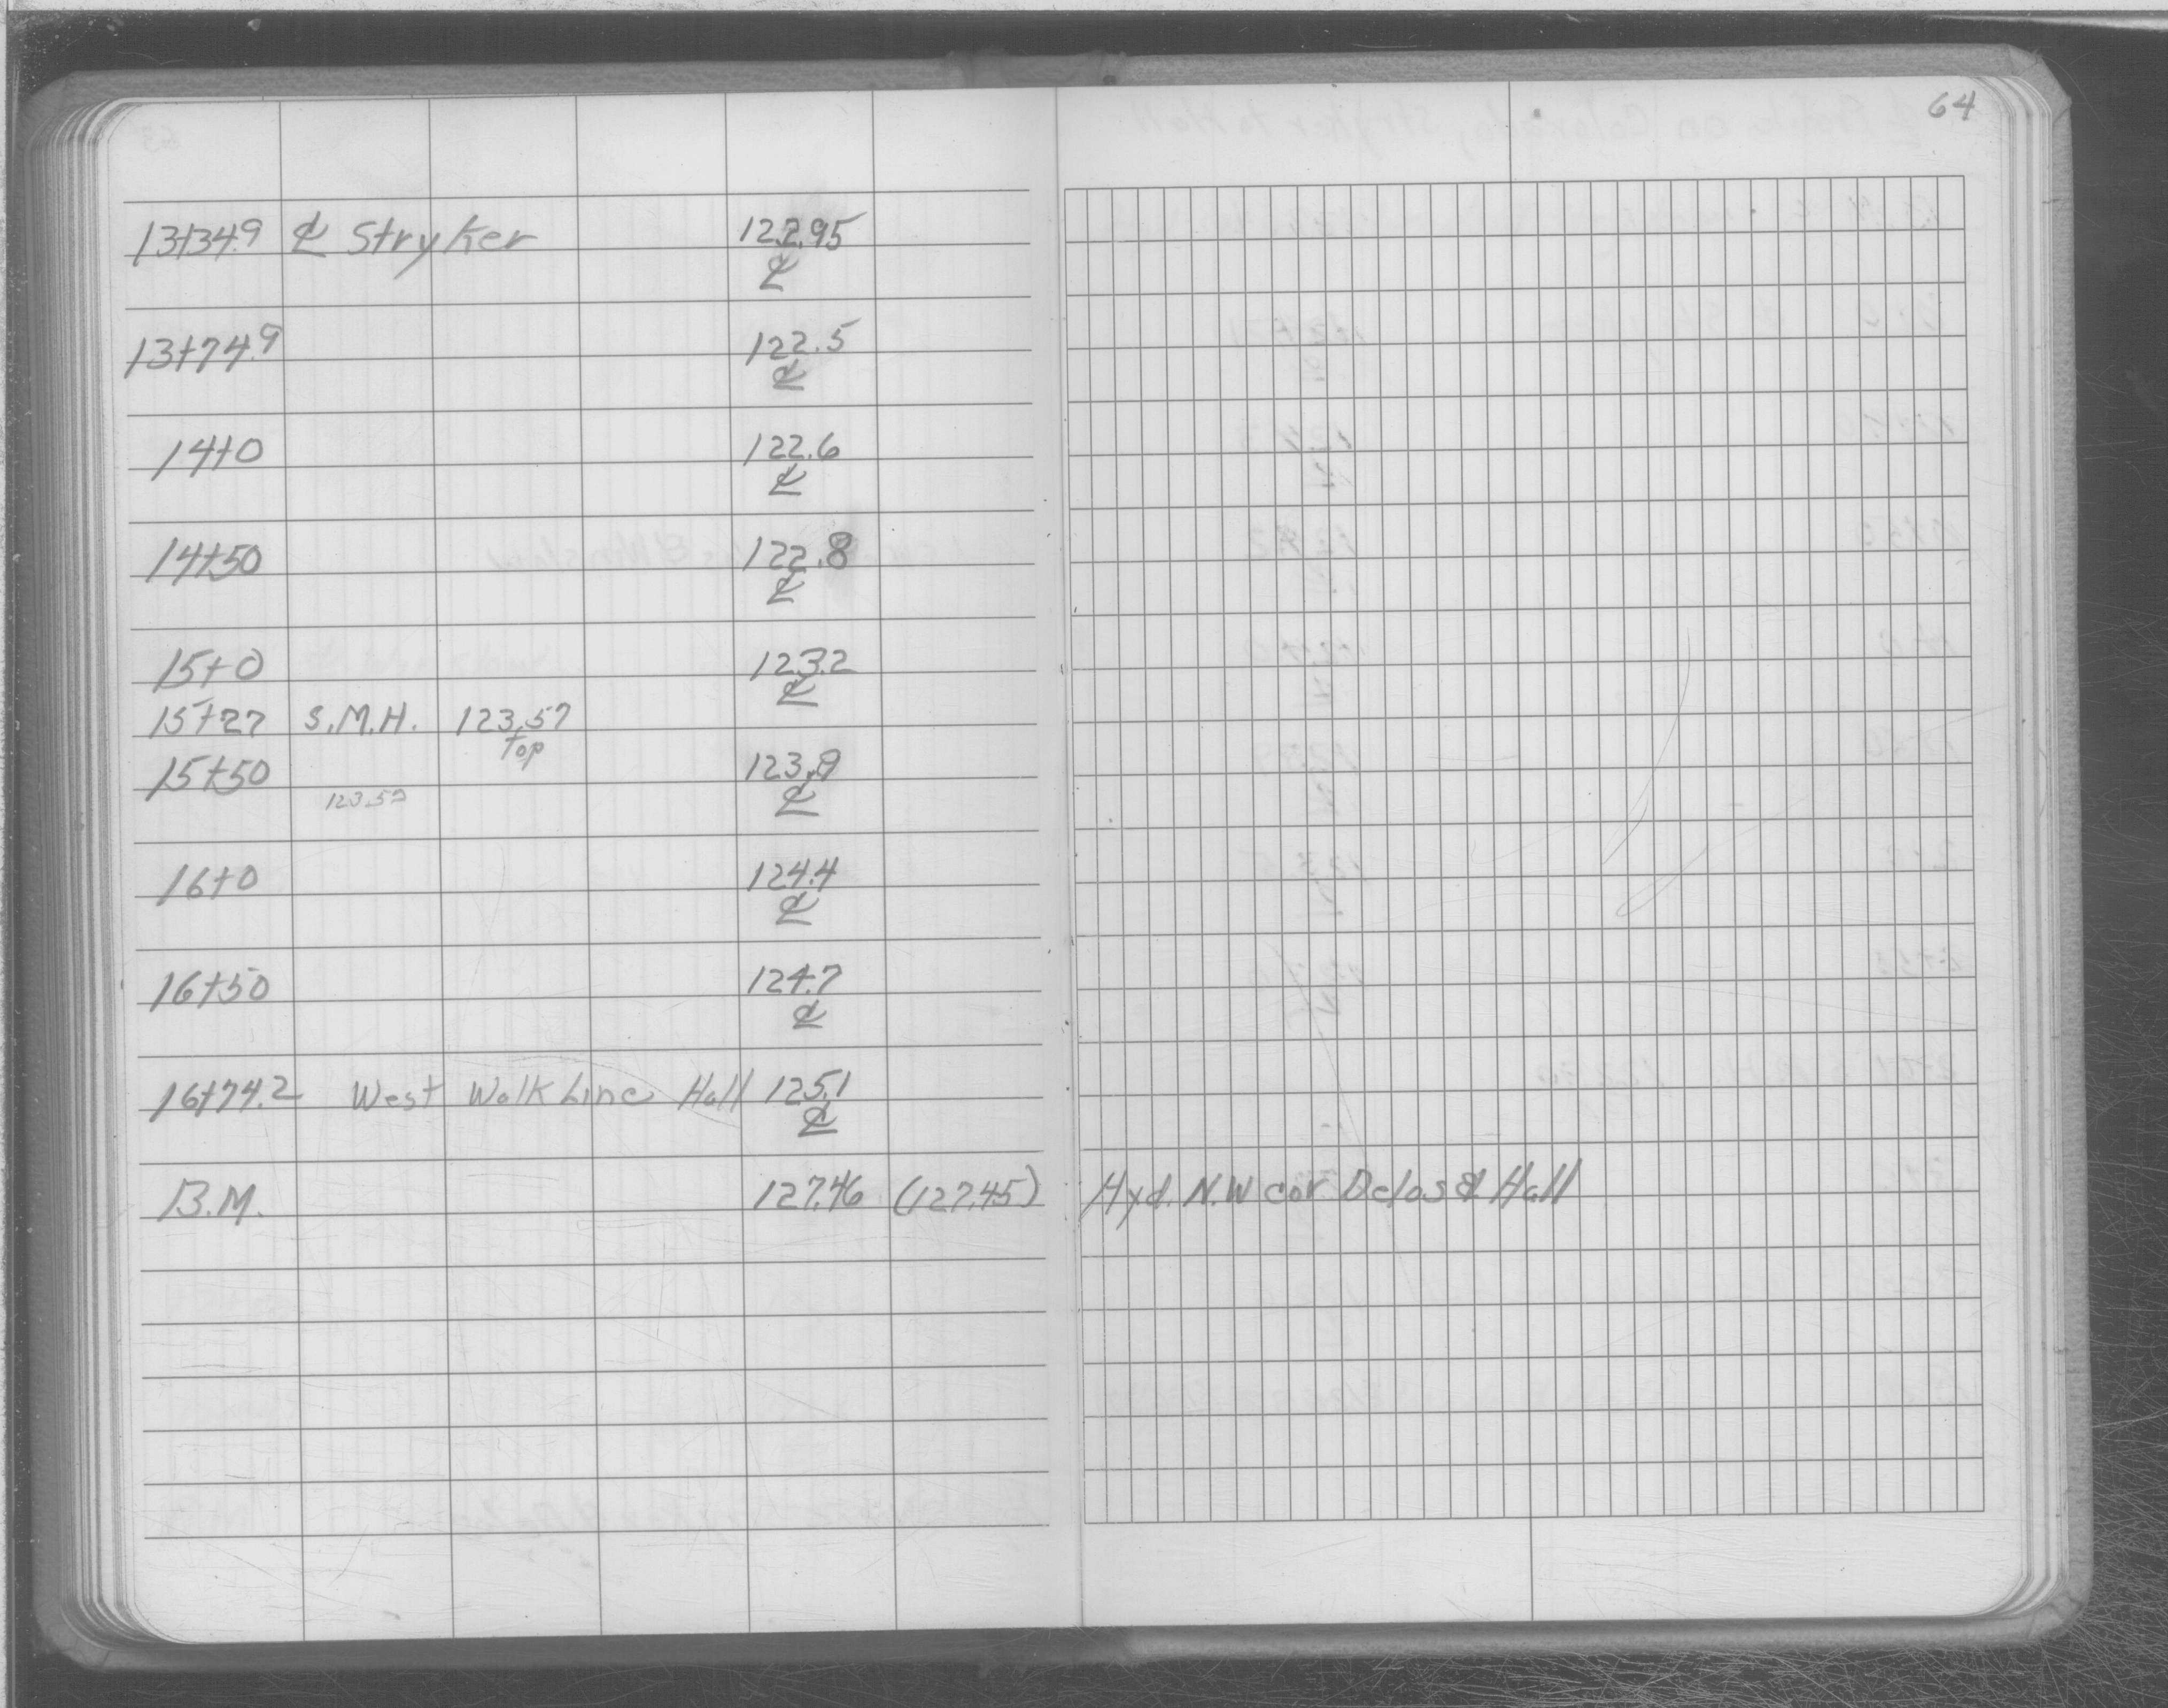 64
13+34.9 ℄ Stryker 122.95
℄
13+74.9 122.5
℄
14+0 122.6
℄
14+50 122.8
℄
15+0 123.2
℄
15+27 S.M.H. 123.57
Top
15+50 123.9
℄
123.57
16+0 124.4
℄
16+50 124.7
℄
16+74.2 West Walk Line Hall 125.1
℄
B.M. 127.46 (127.45) Hyd. N.W cor Delos & Hall